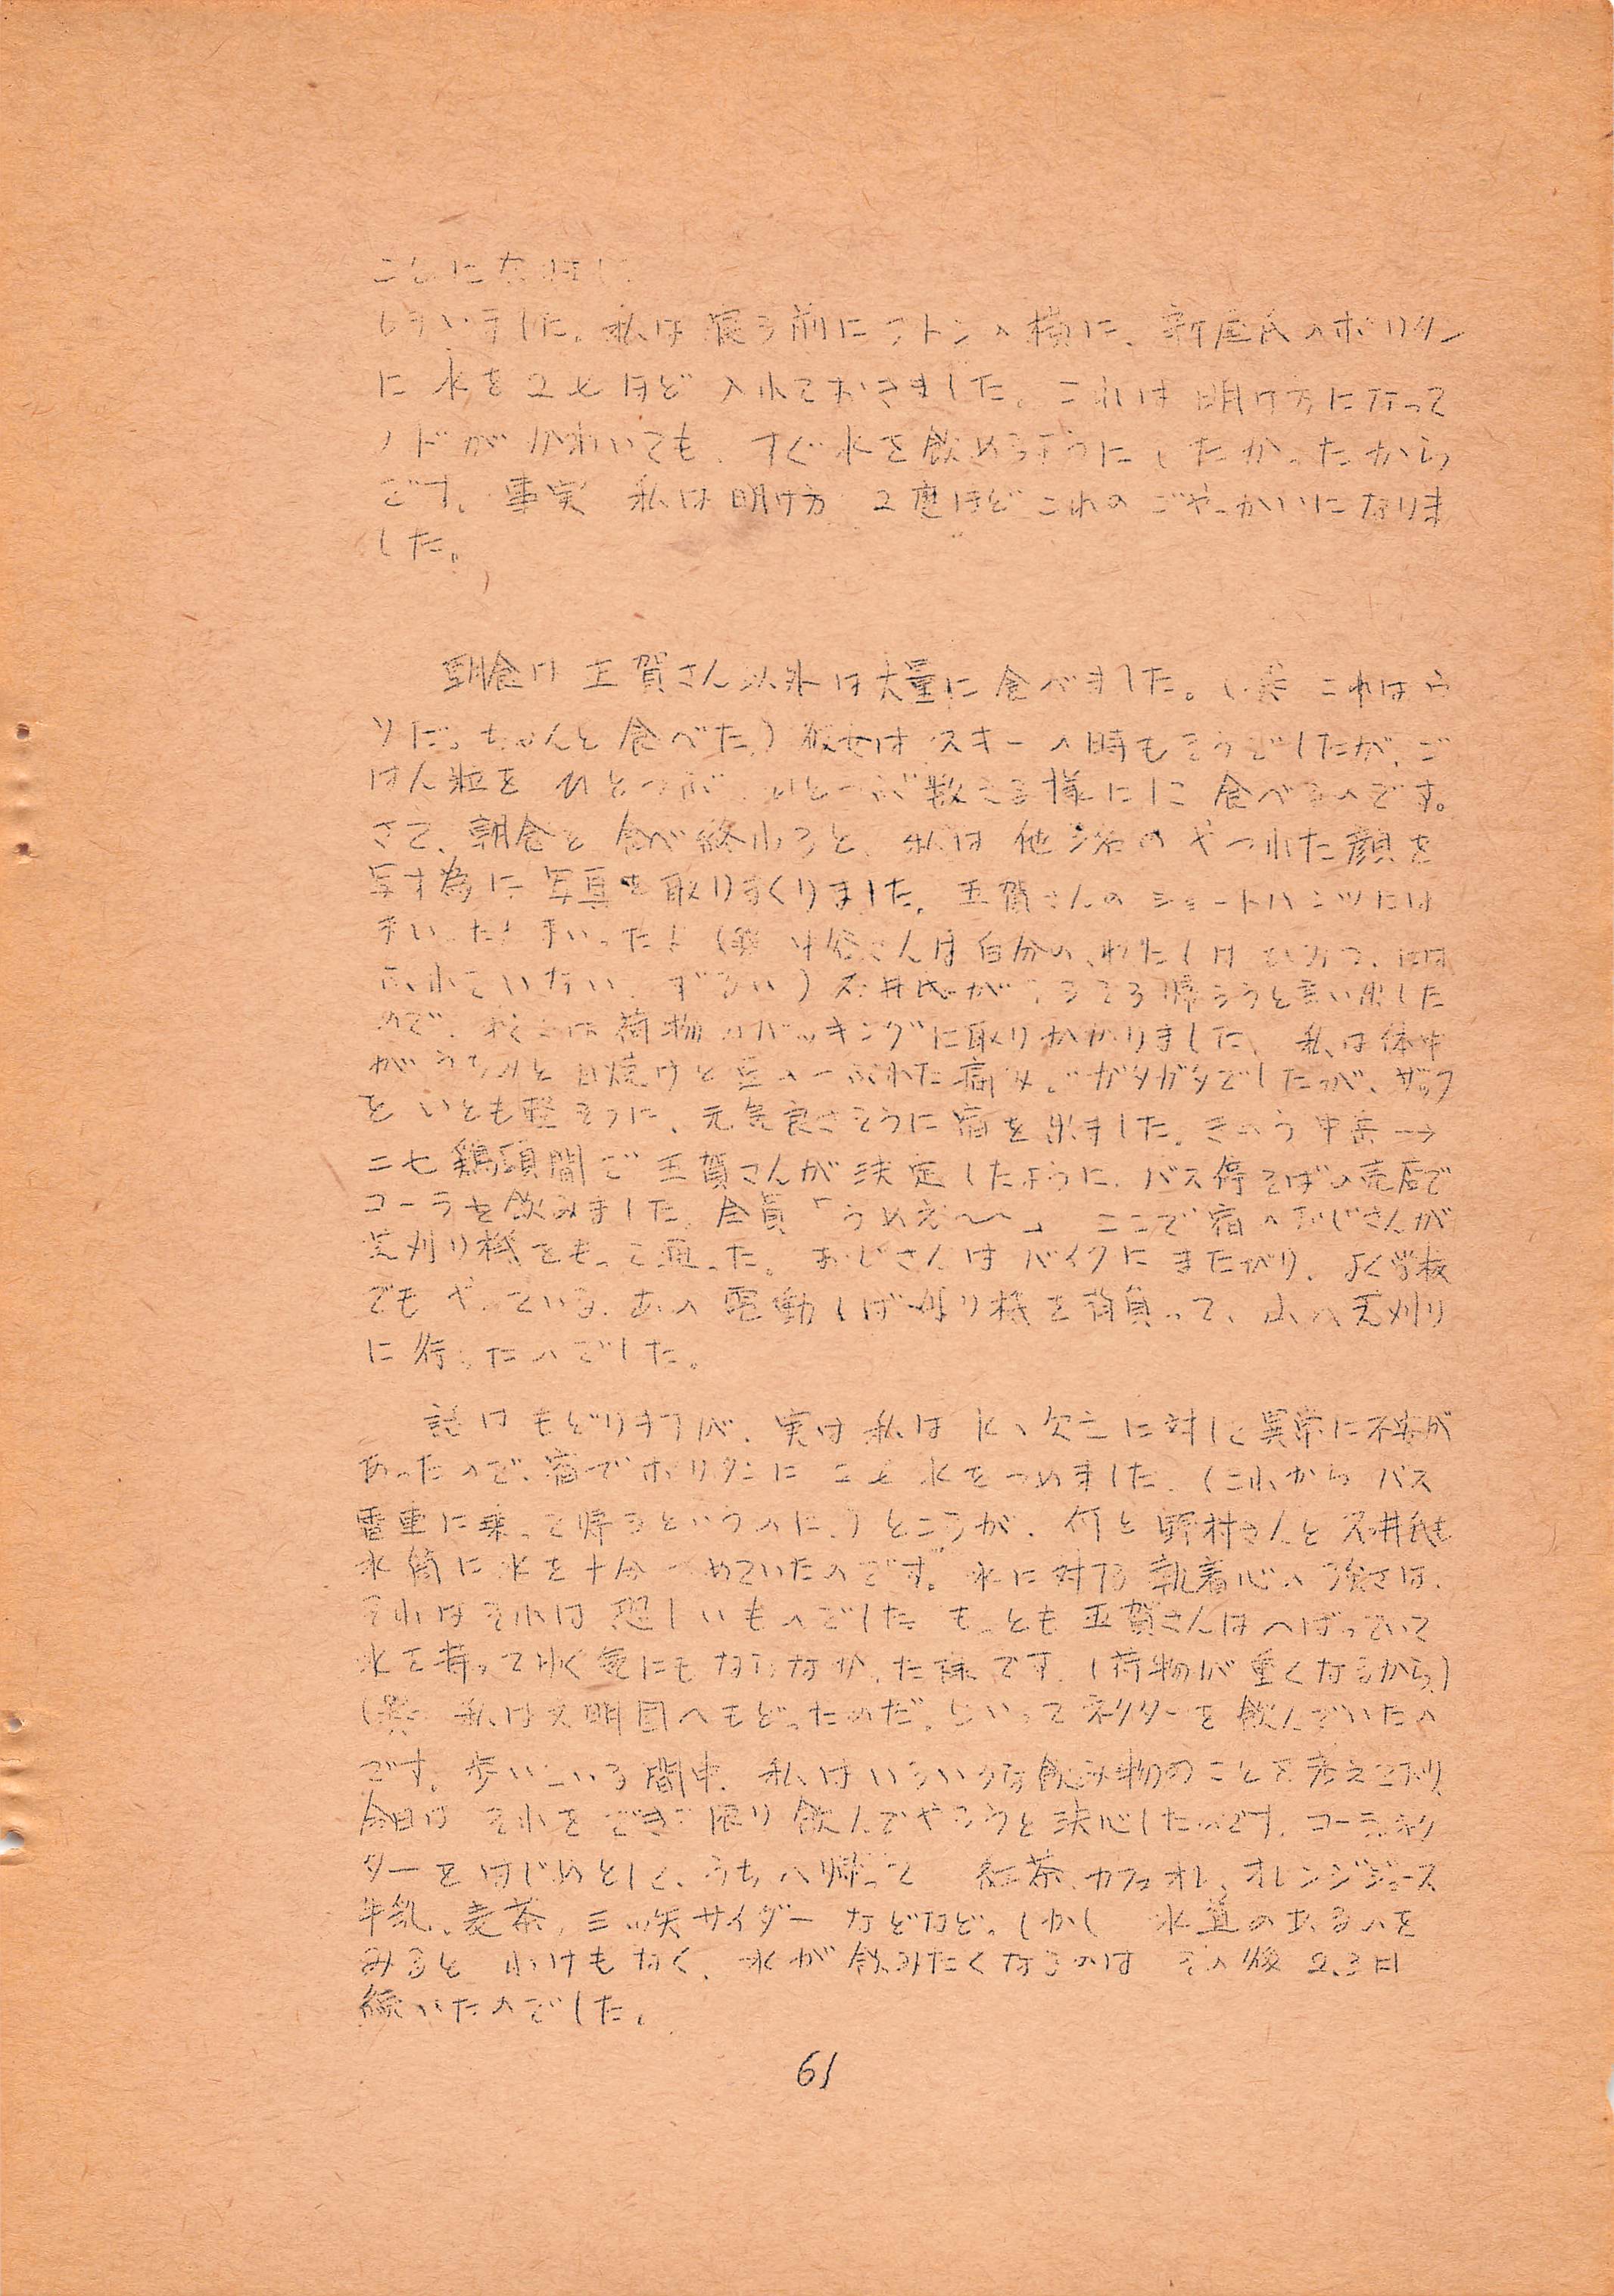 ことになりました
もらいました。私は寝る前にフトンの横に、新庄氏のポリタン
に水を2ℓほど入れておきました。これは明け方になって
ノドがかわいても、すぐ水を飲めるようにしたかったから
です。事実 私は明け方 2度ほどこれのごやっかいになりま
した。
朝食は玉賀さん以外は大量に食べました。(これはウ
ソだ。ちゃんと食べた)彼女はスキーの時もそうでしたが、ご
はん粒をひとつぶ、ひとつぶ数える様にに食べるのです。
さて、朝食を食べ終わると、私は他3名のやつれた顔を
写す為に写真を取りまくりました。玉賀さんのショートパンツには
まいった!まいった!(さんは自分の、わたしはひみつ、には
ふれていない、ずるい)石井氏がそろそろ帰ろうと言い出した
ので、我々は荷物のパッキングに取りかかりました。私は体中
がうちみと日焼けと豆のつぶれた痛みでガタガタでしたが、ザック
をいとも軽そうに、元気良さそうに宿を出ました。きのう中岳→
二七鶏頭間で玉賀さんが決定したように、バス停そばの売店で
コーラを飲みました。全員「うめえ〜〜」 ここで宿のおじさんが
芝刈り機をもって通った。おじさんはバイクにまたがり、よく学校
でもやっている、あの電動しば刈り機を背負って、山へ芝刈り
に行ったのでした。
話はもどりますが、実は私は水の欠乏に対して異常に不安が
あったので、宿でポリタンに2ℓ水をつめました。(これからバス
電車に乗って帰るというのに。)ところが、何と野村さんと石井氏も
水筒に水を十分つめていたのです。水に対する執着心の強さは、
それはそれは恐しいものでした。もっとも玉賀さんはへばっていて
水を持って行く気にもならなかった様です。(荷物が重くなるから)
私は文明国へもどったのだ。といってネクターを飲んでいたの
です。歩いている間中、私はいろいろな飲み物のことを考えており、
今日はそれをできる限り飲んでやろうと決心したのです。コーラ、ネク
ターをはじめとして、うちへ帰って 紅茶、カフェオレ、オレンジジュース
牛乳、麦茶、三ツ矢サイダーなどなど。しかし 水道のあるのを
みるとわけもなく、水が飲みたくなるのは その後 2、3日
続いたのでした。
61